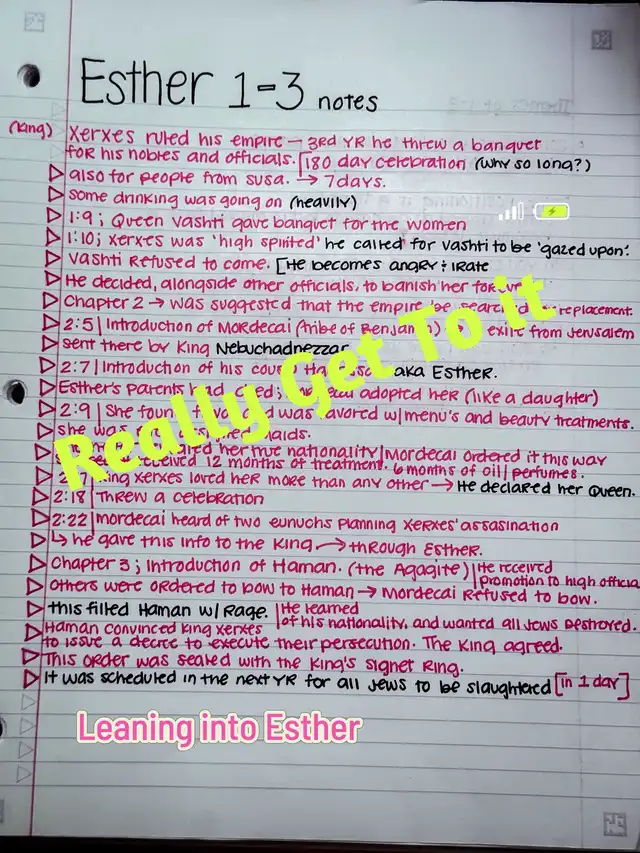 Esther 1-3 notes
(King) Xerxes ruled his empire — 3rd YR he threw a banquet
for his nobles and officials. [180 day celebration (why so long?)
also for people from Susa. → 7 days.
some drinking was going on (heavily)
1:9 ; Queen Vashti gave banquet for the women
1:10 ; Xerxes was 'high spirited' he called for Vashti to be 'gazed upon'.
Vashti Refused to come. [He becomes angry + irate
He decided, alongside other officials, to banish her forever
Chapter 2 → was suggested that the empire be searched replacement.
2:5 | Introduction of Mordecai (tribe of Benjamin) exile from Jerusalem
sent there by King Nebuchadnezzar
2:7 | Introduction of his aka Esther.
Esther's parents had died; adopted her (like a daughter)
2:9 | She and was favored w/menu's and beauty treatments.
She was maids.
her true nationality | Mordecai ordered it this way
received 12 months of treatment. 6 months of oil | perfumes.
King Xerxes loved her more than any other → He declared her Queen.
2:18 | Threw a celebration
2:22 | mordecai heard of two eunuchs planning Xerxes' assasination
↳ he gave this info to the King → through Esther.
Chapter 3 ; Introduction of Haman. (the Agagite) | He received
promotion to high official
Others were ordered to bow to Haman → Mordecai Refused to bow.
this filled Haman w/ Rage. | He learned
of his nationality, and wanted all Jews Destroyed.
Haman convinced King Xerxes
to issue a decree to execute their persecution. The King agreed.
This order was sealed with the King's signet Ring.
It was scheduled in the next YR for all Jews to be slaughtered [in 1 day]
Really Get To it
Leaning into Esther